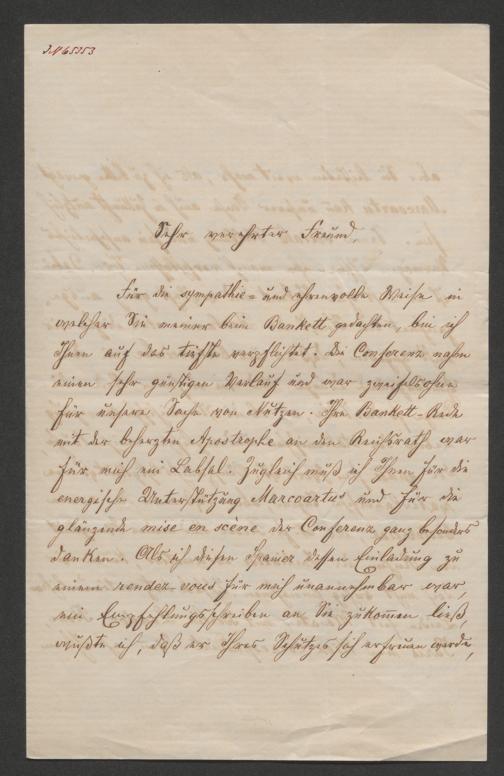 J.N 65353
Sehr verehrter Freund,
Für die sympathie- und ehrenvolle Weise in
welcher Sie meiner beim Bankett gedachten, bin ich
Ihnen auf das tiefste verpflichtet. Die Conferenz nahm
einen sehr günstigen Verlauf und war zweifelsohne
für unsere Sache von Nutzen. Ihre Bankett-Rede
mit der beherzten Apostrophe an den Reichsrath war
für mich ein Labsal. Zugleich muß ich Ihnen für die
energische Unterstützung Marcoartus und für die
glänzende mise en scène der Conferenz ganz besonders
danken. Als ich diesem Spanier dessen Einladung zu
einem rendez-vous für mich unannehmbar war,
ein Empfehlungsschreiben an Sie zukom̄en ließ,
wußte ich, daß er Ihres Schutzes sich erfreuen werde,